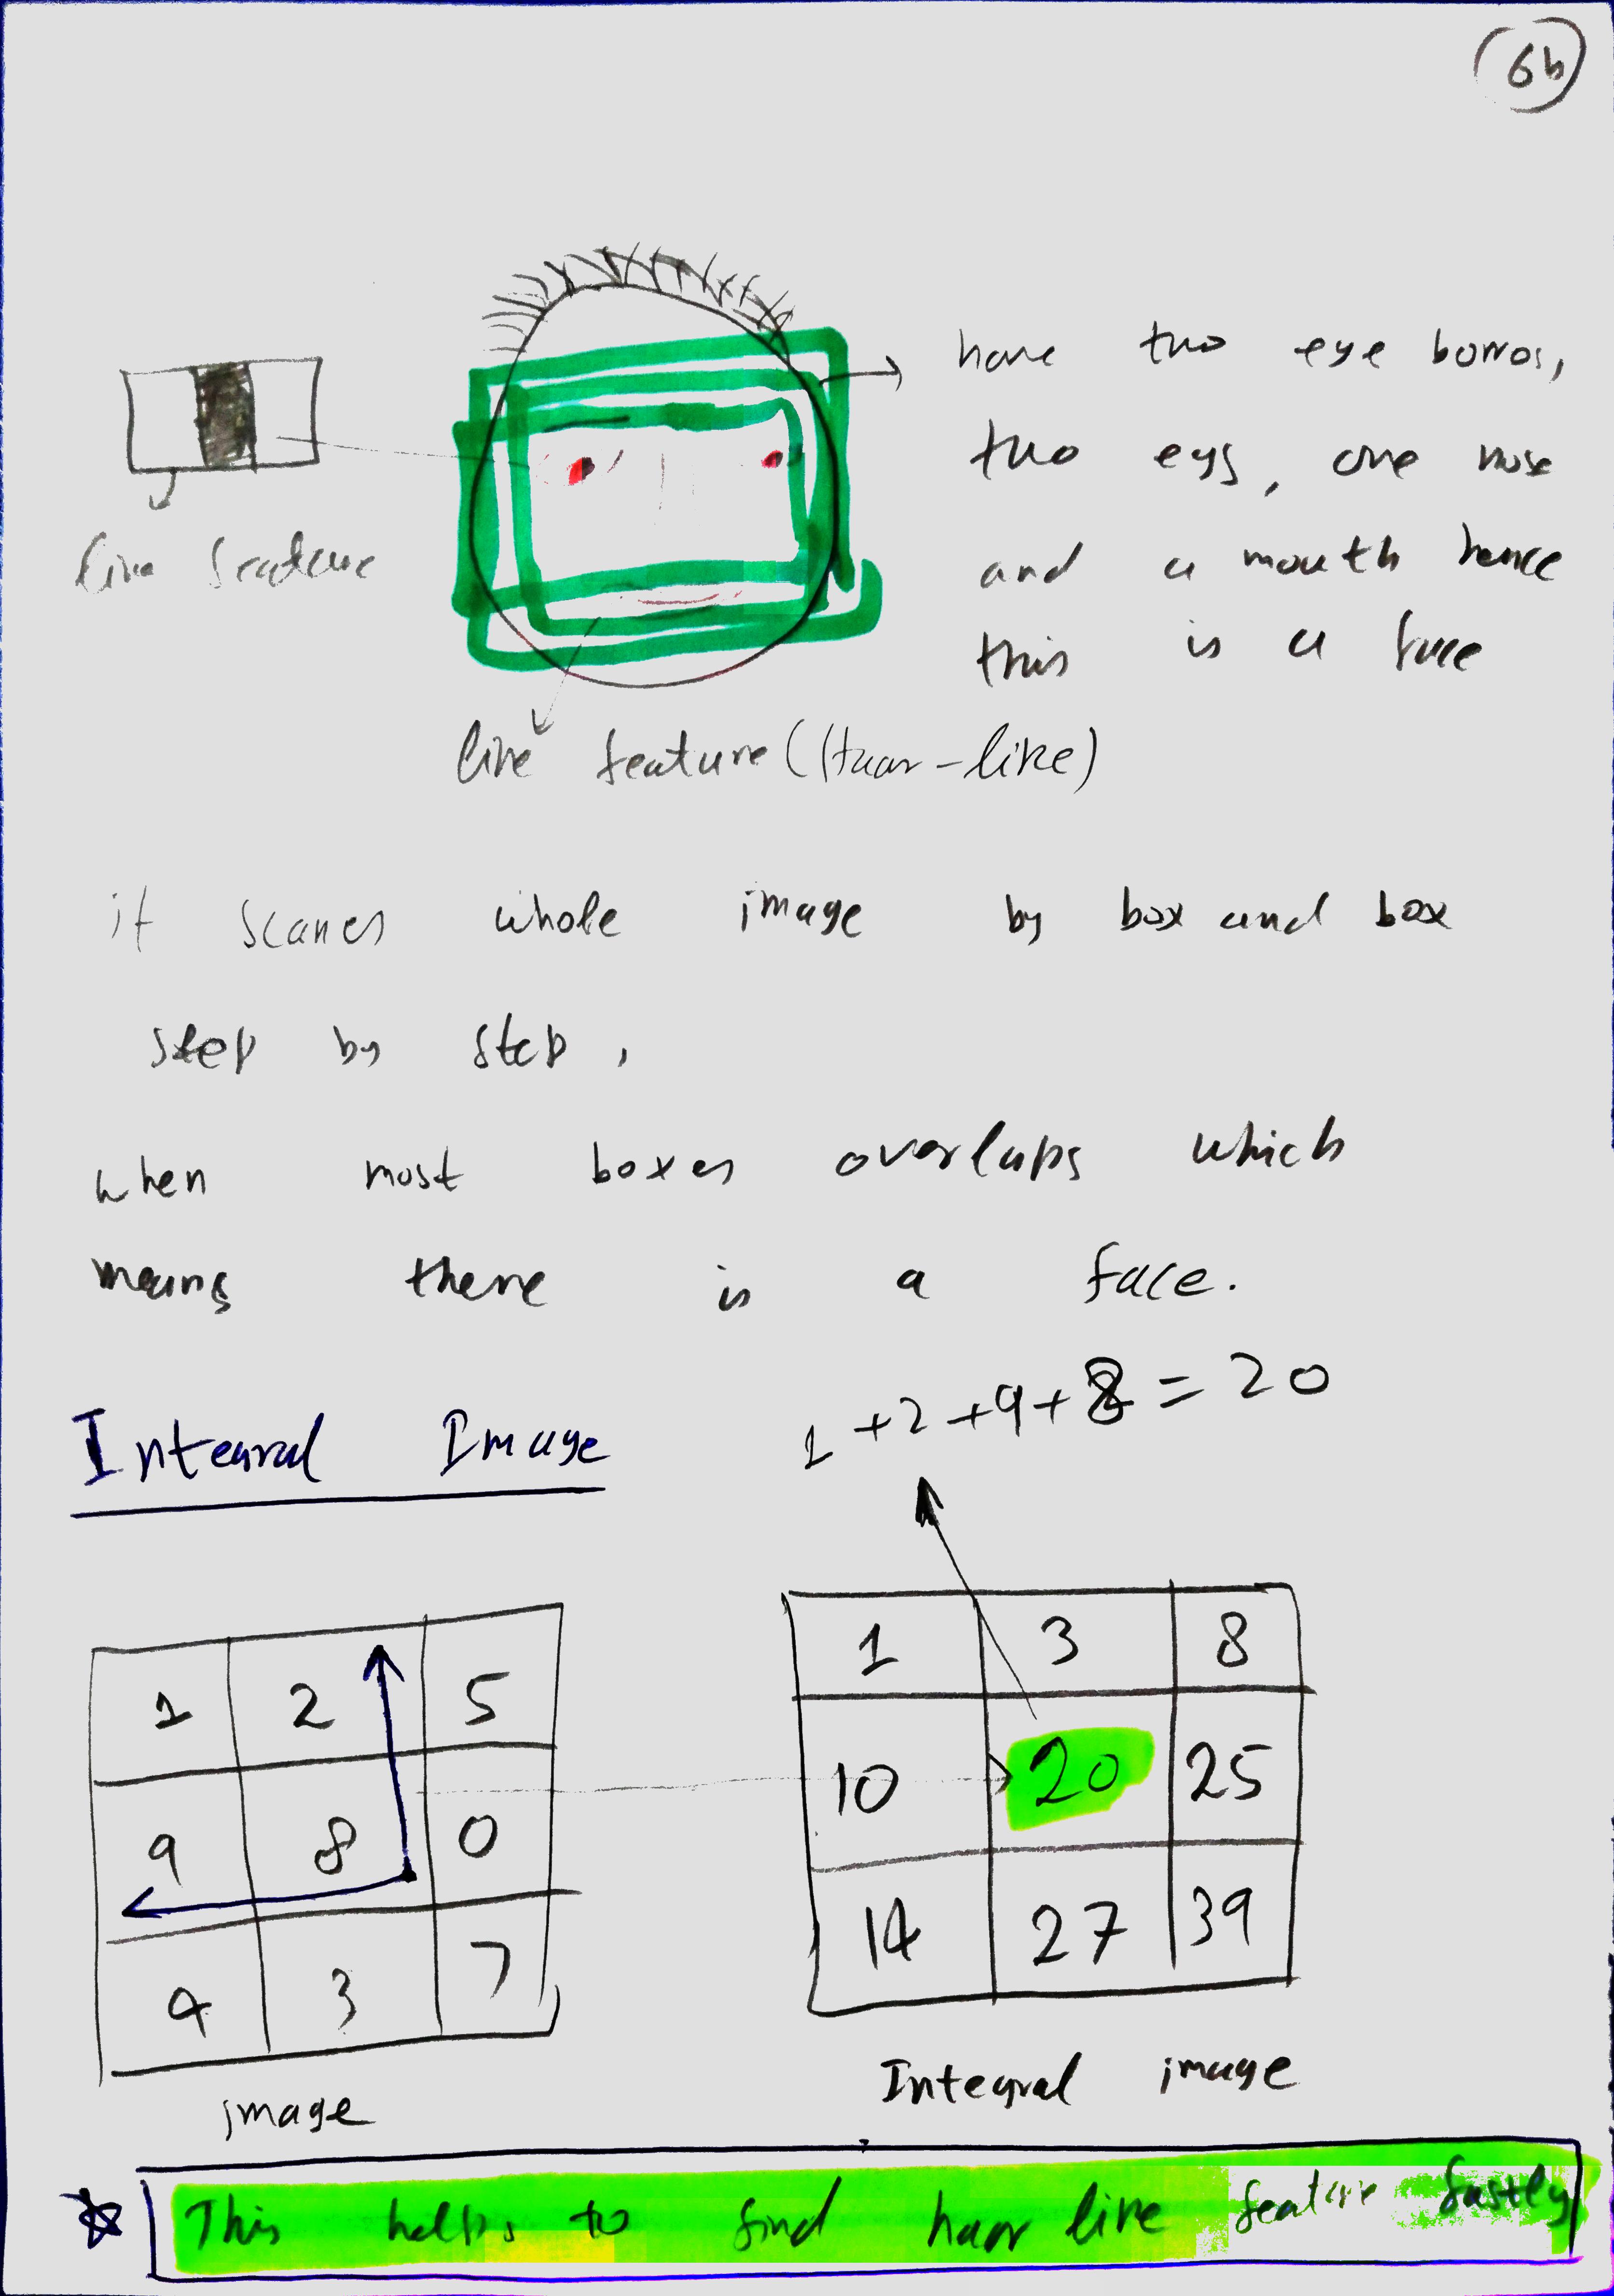 6b
have two eye borros,
two eys, one nose
and a mouth hence
this is a face
line feature
line feature (Haar-like)
it scanes whole image by box and box
step by step,
when most boxes overlaps which
means there is a face.
1+2+9+8=20
Integral Image
1 2 5
9 8 0
4 3 7
image
1 3 8
10 20 25
14 27 39
Integral image
This helps to find haar line feature fastly